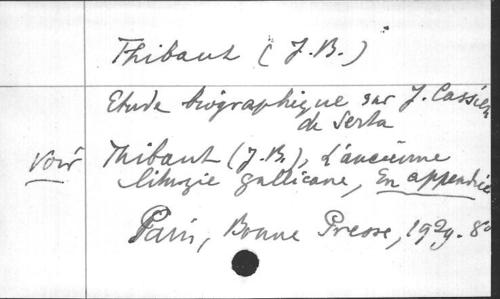 Thibaut (J.B.)
Etude biographique sur J. Cassien
de Serta
Voir Thibaut (J.B.), L'ancienne
liturgie gallicane, En appendice
Paris, Bonne Presse, 1929. 8º